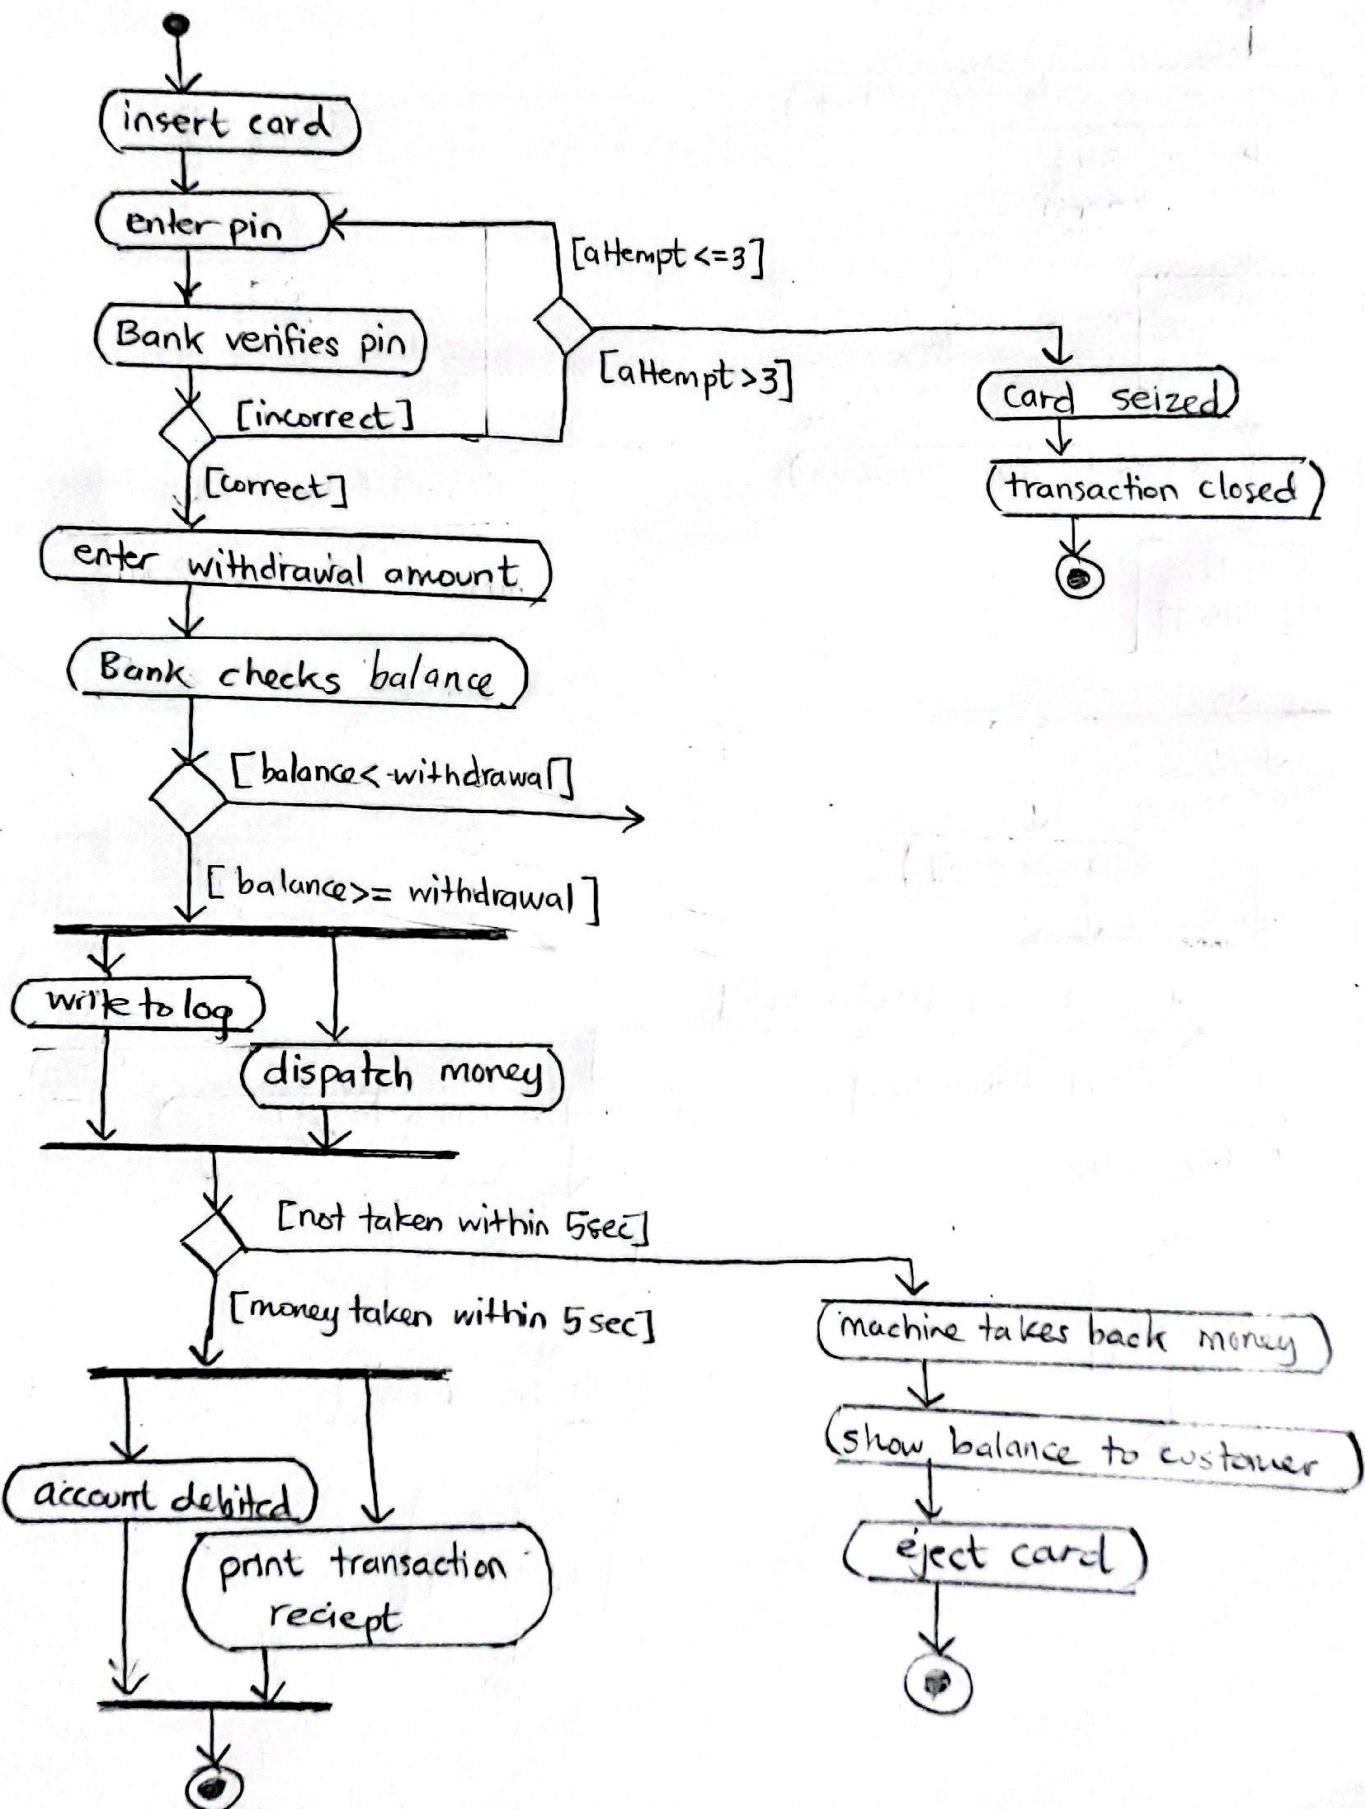 insert card
enter pin
[attempt <=3]
Bank verifies pin
[attempt >3]
card seized
[incorrect]
[correct]
transaction closed
enter withdrawal amount
Bank checks balance
[balance< withdrawal]
[balance>= withdrawal]
write to log
dispatch money
[not taken within 5sec]
[money taken within 5sec]
machine takes back money
show balance to customer
account debited
eject card
print transaction
reciept